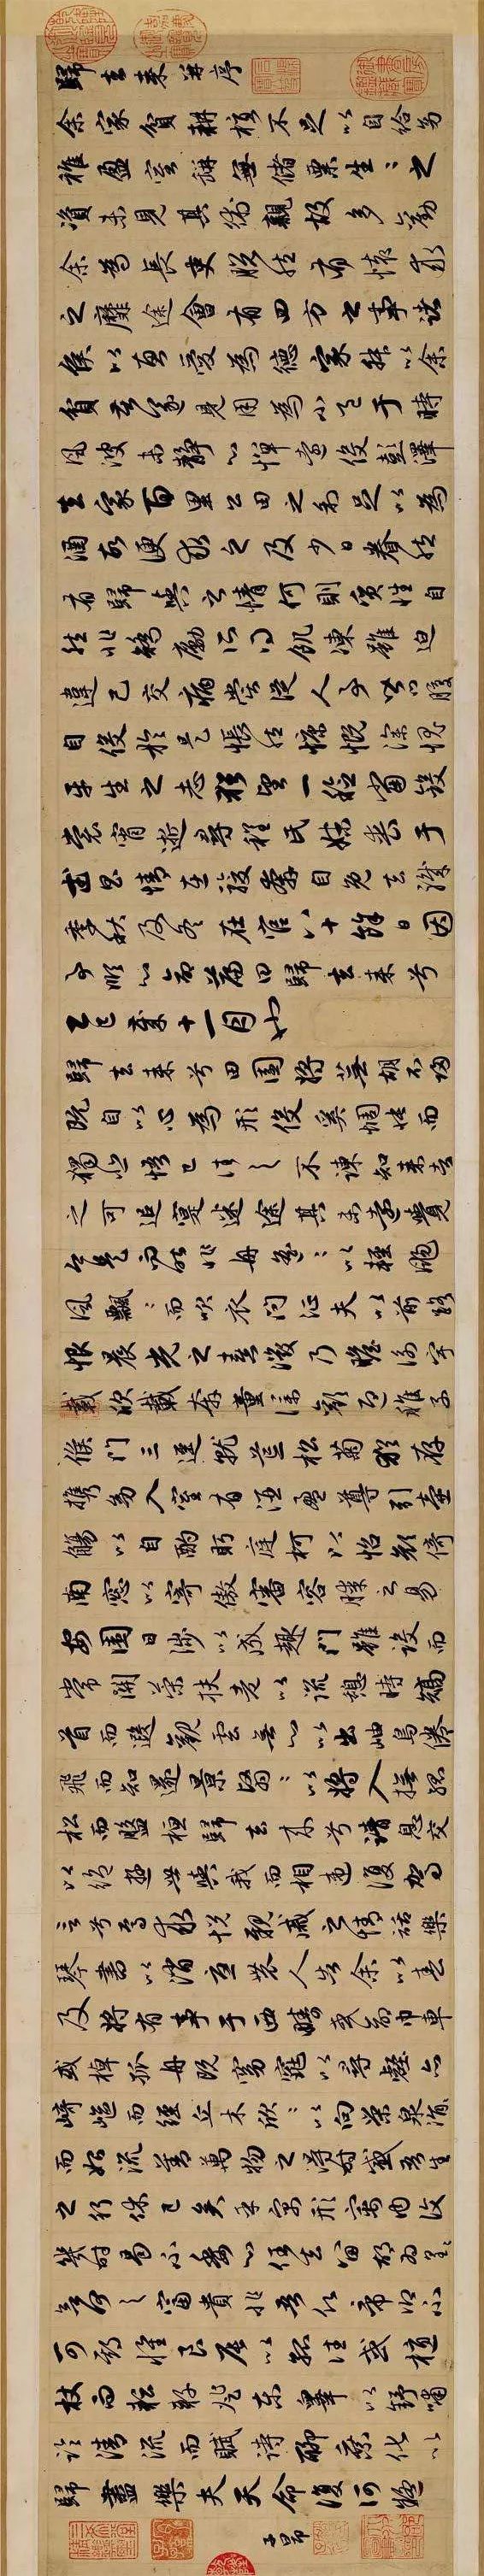 歸去來并序
余家貧耕植不足以自給幼
稚盈室缾無儲粟生生之
資未見其術親故多勸
余為長吏脫然有懷求
之靡途會有四方之事諸
侯以惠愛為德家叔以余
貧苦遂見用為小邑于時
風波未靜心憚遠役彭澤
去家百里公田之利足以為
酒故便求之及少日眷然
有歸與之情何則質性自
然非矯勵所得飢凍雖迫
違己交病嘗從人事皆口腹
自役於是悵然慷慨深愧
平生之志猶望一稔當斂
裳宵逝尋程氏妹喪于
武昌情在駿奔自免去職
季秋及冬在官八十餘日因
事順心命篇曰歸去來兮
乙巳歲十一月也
歸去來兮田園將蕪胡不歸
既自以心為形役奚惆悵而
獨悲悟已往之不諫知來者
之可追寔迷途其未遠覺
今是而昨非舟遙遙以輕颺
風飄飄而吹衣問征夫以前路
恨晨光之熹微乃瞻衡宇
載欣載奔童僕歡迎稚子
候門三逕就荒松菊猶存
攜幼入室有酒盈尊引壺
觴以自酌眄庭柯以怡顏倚
南窓以寄傲審容膝之易
安園日涉以成趣門雖設而
常關策扶老以流憩時矯
首而遐觀雲無心以出岫鳥倦
飛而知還景翳翳以將入撫孤
松而盤桓歸去來兮請息交
以絕遊世與我而相遺復駕
言兮焉求悅親戚之情話樂
琴書以消憂農人告余以春
及將有事于西疇或命巾車
或棹孤舟既窈窕以尋壑亦
崎嶇而經丘木欣欣以向榮泉涓涓
而始流羨萬物之得時感吾生
之行休已矣乎寓形宇內復
幾時曷不委心任去留胡為遑遑
欲何之富貴非吾願帝鄉不
可期懷良辰以孤往或植
杖而耘耔登東皋以舒嘯
臨清流而賦詩聊乘化以
歸盡樂夫天命復何疑
子昂